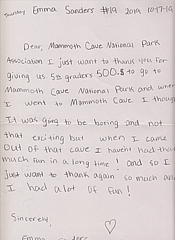 Thursday Emma Sanders #19 2019 10-17-19
Dear, Mammoth Cave National Park
Association I just want to thank you for
giving us 5th graders 500.$ to go to
Mammoth Cave National Park and when
I went to Mammoth Cave I though
It was going to be boring and not
that exciting but when I came
out of that cave I havent had that
much fun in a long time! and so I
just want to thank again so much and
I had alot of fun!
Sincerely,
Emma Sanders